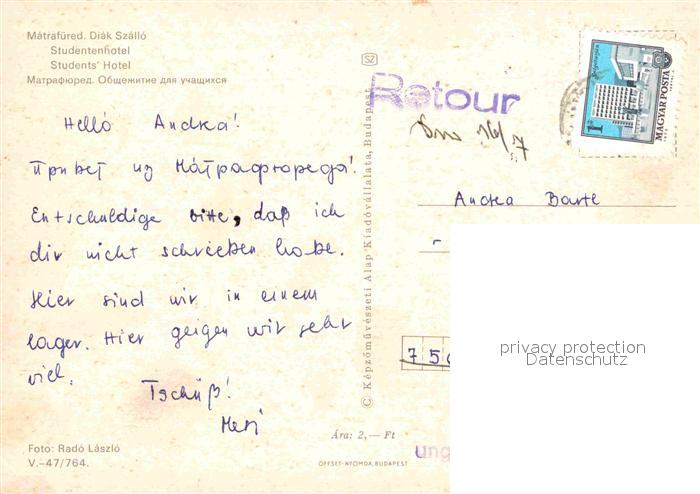 Mátrafüred. Diák Szálló
Studentenhotel
Students' Hotel
Матрафюред. Общежитие для учащихся
Helló Andrea!
Привет из Мáтрафюредa!
Entschuldige bitte, daß ich
dir nicht schrieben habe.
Hier sind wir in einem
lager. Hier geigen wir sehr
viel.
Tschüß!
Foto: Radó László
V.—47/764.
© Képzőművészeti Alap Kiadóvállalata, Budapest
SZ
Ára: 2,— Ft
OFFSET-NYOMDA, BUDAPEST
Retour
1 Ft
MAGYAR POSTA
Andrea Bartl
75
privacy protection
Datenschutz